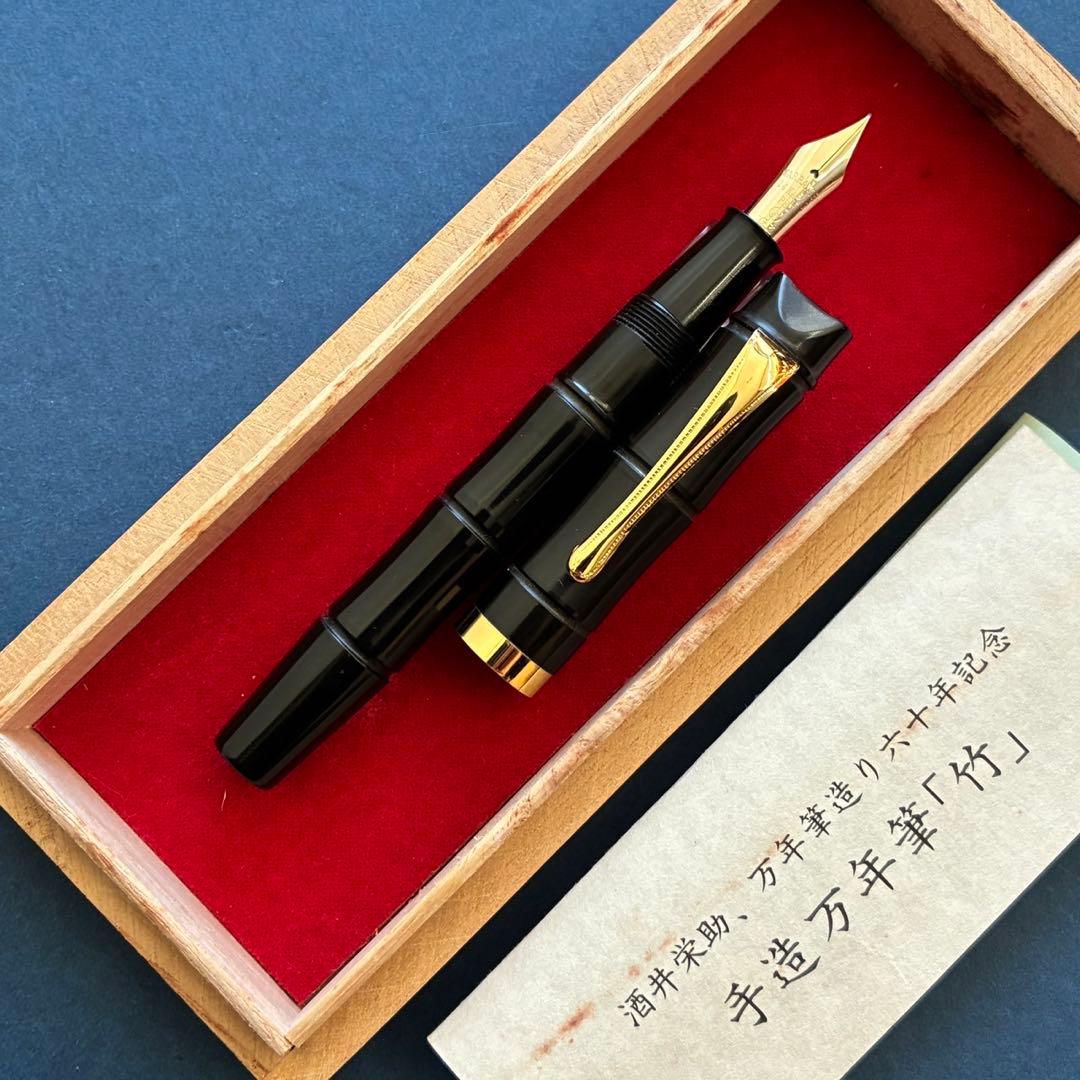 酒井栄助、万年筆造り六十年記念
手造万年筆「竹」